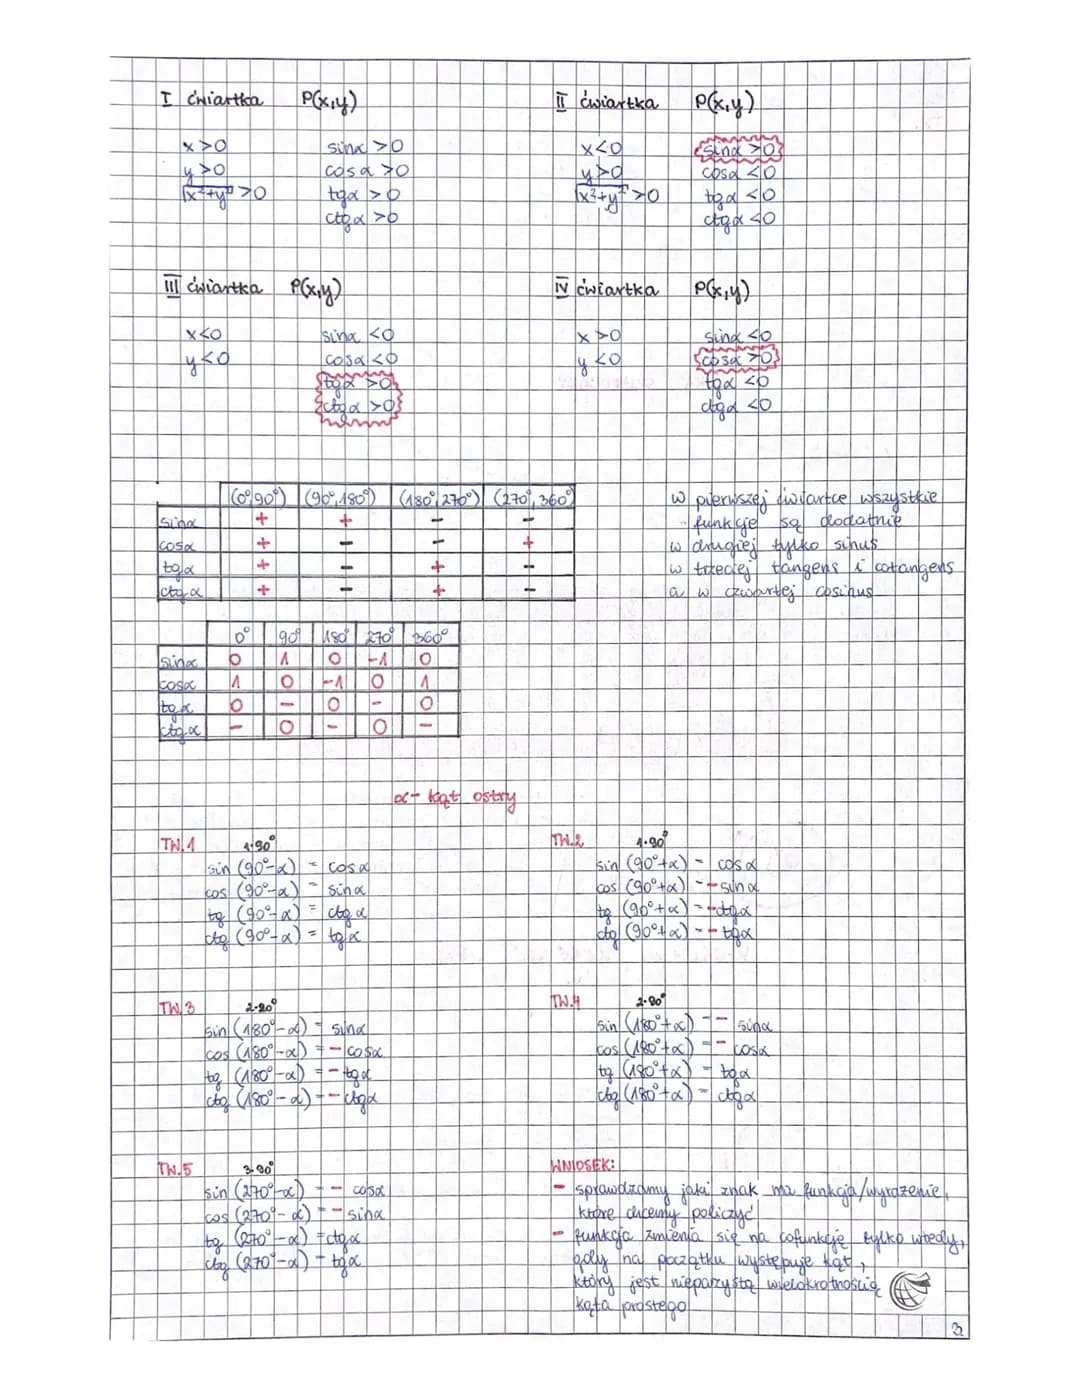 I ćwiartka P(x,y)
x>0 sinα >0
y>0 cosα >0
√x²+y² >0 tgα >0
ctgα >0
II ćwiartka P(x,y)
x<0 sinα >0
y>0 cosα <0
√x²+y² >0 tgα <0
ctgα <0
III ćwiartka P(x,y)
x<0 sinα <0
y<0 cosα <0
tgα >0
ctgα >0
IV ćwiartka P(x,y)
x>0 sinα <0
y<0 cosα >0
tgα <0
ctgα <0
(0°,90°) (90°,180°) (180°,270°) (270°,360°)
sinα + + - -
cosα + - - +
tgα + - + -
ctgα + - + -
w pierwszej ćwiartce wszystkie
funkcje są dodatnie
w drugiej tylko sinus
w trzeciej tangens i cotangens
a w czwartej cosinus
0° 90° 180° 270° 360°
sinα 0 1 0 -1 0
cosα 1 0 -1 0 1
tgα 0 - 0 - 0
ctgα - 0 - 0 -
α- kąt ostry
TW.1 1·90°
sin (90°-α) = cosα
cos (90°-α) = sinα
tg (90°-α) = ctgα
ctg (90°-α) = tgα
TW.2 1·90°
sin (90°+α) = cosα
cos (90°+α) = -sinα
tg (90°+α) = -ctgα
ctg (90°+α) = -tgα
TW.3 2·90°
sin (180°-α) = sinα
cos (180°-α) = -cosα
tg (180°-α) = -tgα
ctg (180°-α) = -ctgα
TW.4 2·90°
sin (180°+α) = - sinα
cos (180°+α) = - cosα
tg (180°+α) = tgα
ctg (180°+α) = ctgα
TW.5 3·90°
sin (270°-α) = - cosα
cos (270°-α) = - sinα
tg (270°-α) = ctgα
ctg (270°-α) = tgα
WNIOSEK:
- sprawdzamy jaki znak ma funkcja/wyrażenie,
które chcemy policzyć
- funkcja zmienia się na cofunkcję tylko wtedy,
gdy na początku występuje kąt,
który jest nieparzystą wielokrotnością
kąta prostego